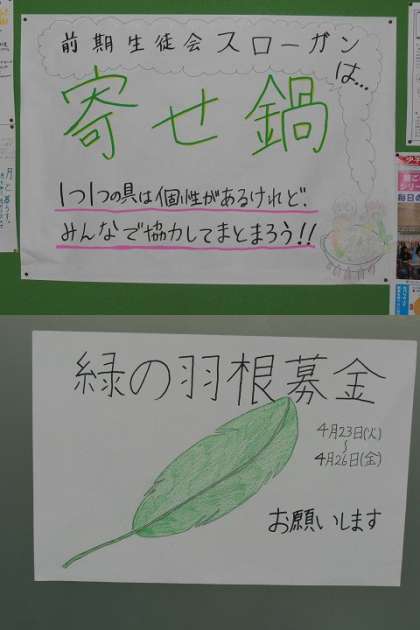 前期生徒会スローガン
は…
寄せ鍋
1つ1つの具は個性があるけれど、
みんなで協力してまとまろう!!
緑の羽根募金
4月23日(火)
〜
4月26日(金)
お願いします